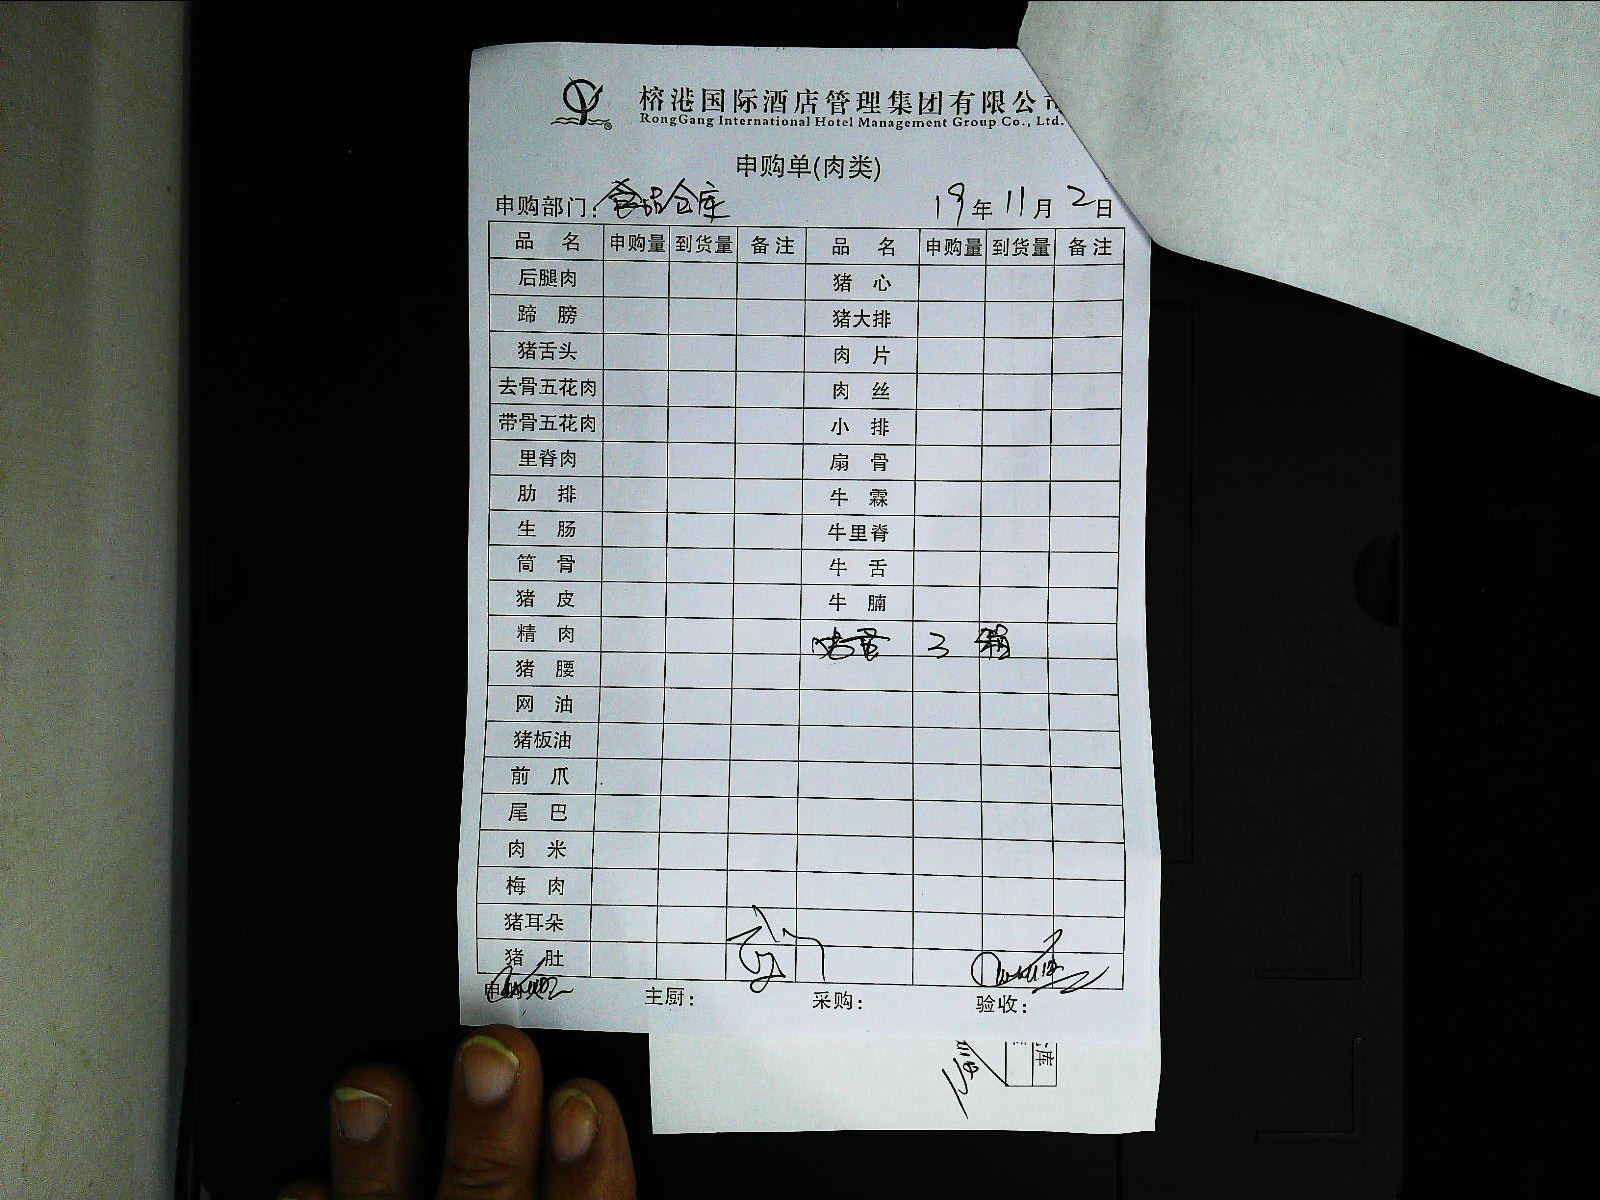 榕港国际酒店管理集团有限公司
RongGang International Hotel Management Group Co., Ltd.
申购单(肉类)
申购部门：食品仓库 19年11月2日
品 名 申购量 到货量 备注 品 名 申购量 到货量 备注
后腿肉 猪 心
蹄 膀 猪大排
猪舌头 肉 片
去骨五花肉 肉 丝
带骨五花肉 小 排
里脊肉 扇 骨
肋 排 牛 霖
生 肠 牛里脊
筒 骨 牛 舌
猪 皮 牛 腩
精 肉 3 箱
猪 腰
网 油
猪板油
前 爪
尾 巴
肉 米
梅 肉
猪耳朵
猪 肚
主厨： 采购： 验收：
库